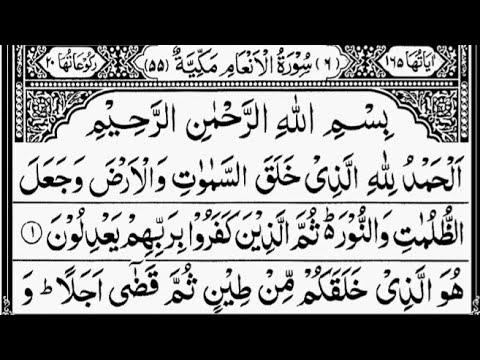 اٰیَاتُهَا ١٦٥ (٦) سُوْرَةُ الْاَنْعَامِ مَكِّیَّةٌ (٥٥) رُكُوْعَاتُهَا ٢٠
بِسْمِ اللهِ الرَّحْمٰنِ الرَّحِیْمِ
اَلْحَمْدُ لِلّٰهِ الَّذِیْ خَلَقَ السَّمٰوٰتِ وَالْاَرْضَ وَجَعَلَ
الظُّلُمٰتِ وَالنُّوْرَ ؕ ثُمَّ الَّذِیْنَ كَفَرُوْا بِرَبِّهِمْ یَعْدِلُوْنَ ١
هُوَ الَّذِیْ خَلَقَكُمْ مِّنْ طِیْنٍ ثُمَّ قَضٰۤی اَجَلًا ؕ وَ